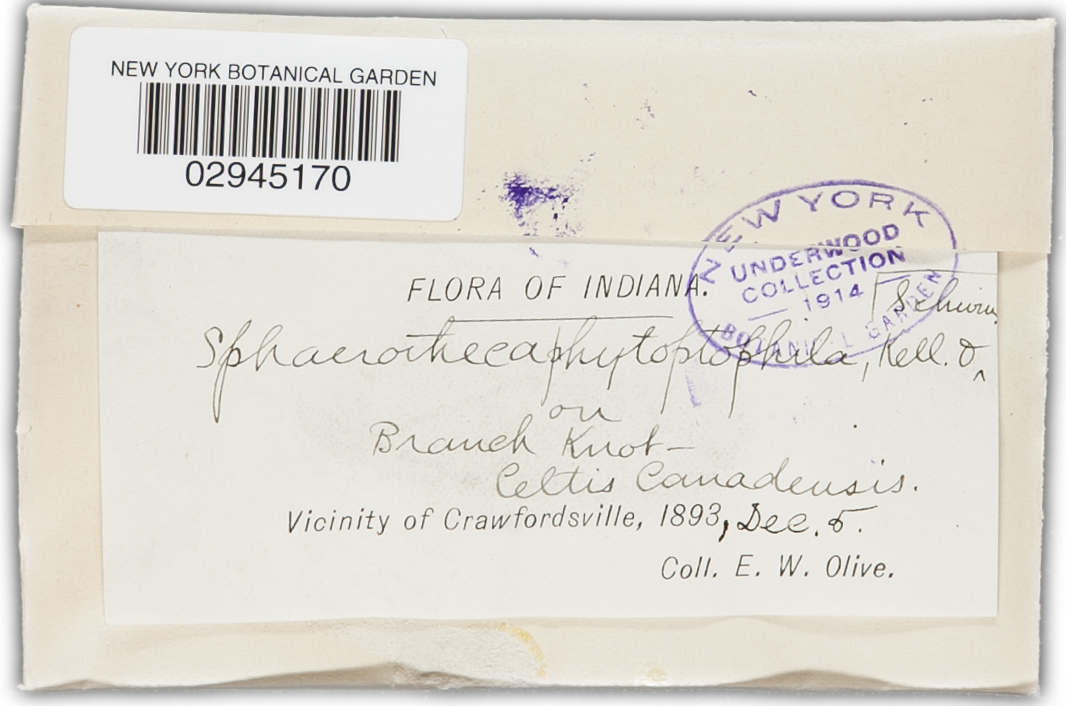 NEW YORK BOTANICAL GARDEN
02945170
NEW YORK
UNDERWOOD
COLLECTION
1914
BOTANICAL GARDEN
FLORA OF INDIANA.
Sphaerotheca phytoptophila, Kell. &
on
Branch Knot—
Celtis Canadensis.
Vicinity of Crawfordsville, 1893, Dec. 5.
Coll. E. W. Olive.